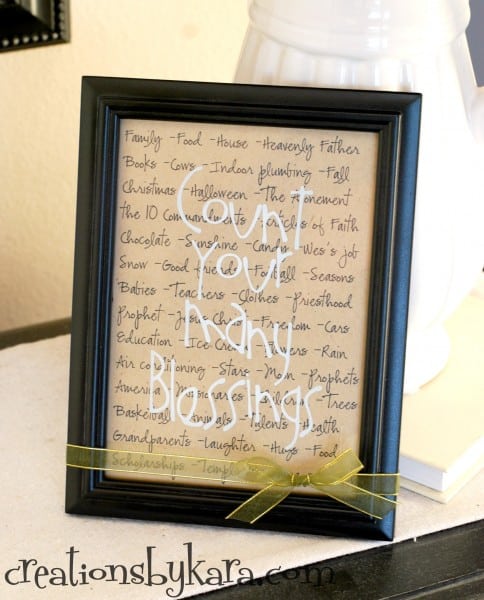 Family -Food -House -Heavenly Father
Books -Cows -Indoor plumbing -Fall
Christmas -Halloween -The Atonement
the 10 Commandments -Articles of Faith
Chocolate -Sunshine -Candy -Wes's job
Snow -Good friends -Football -Seasons
Babies -Teachers -Clothes -Priesthood
Prophet -Jesus Christ -Freedom -Cars
Education -Ice Cream -Flowers -Rain
Air conditioning -Stars -Mom -Prophets
America -Missionaries -Children -Trees
Basketball -Animals -Talents -Health
Grandparents -Laughter -Hugs -Food
Scholarships -Temple
Count
Your
many
Blessings
creationsbykara.com